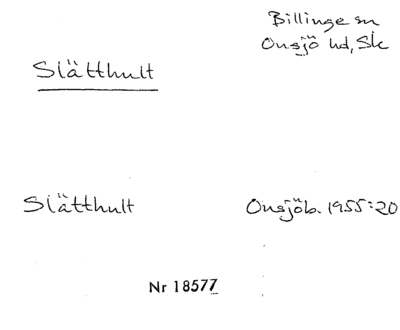 Billinge sn
Onsjö hd, Sk
Slätthult
Slätthult Onsjöb. 1955:20
Nr 18577